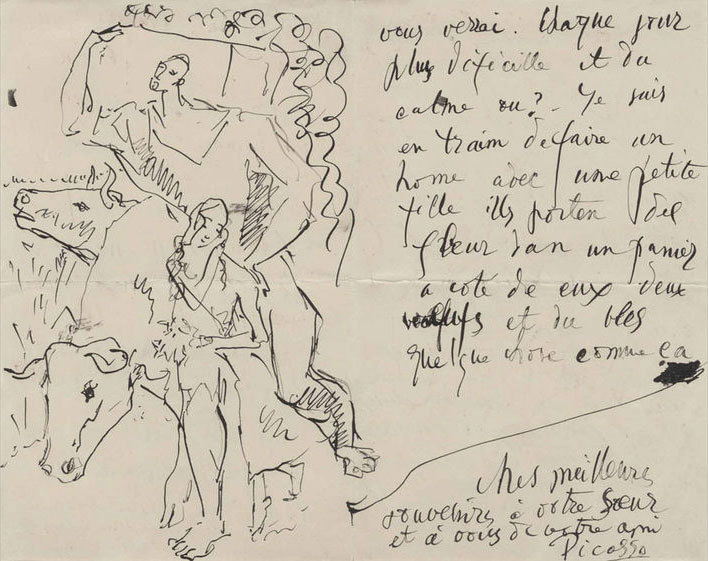 vous verrai. Chaque jour
plus dificille et du
calme ou? Je suis
en traim de faire un
home avec une petite
fille ills porten des
fleur dan un panier
a coté de eux deux
et du bles
quelque chose comme ça
Mes meilleurs
souvenirs à votre Sœur
et à vous de votre ami
Picasso